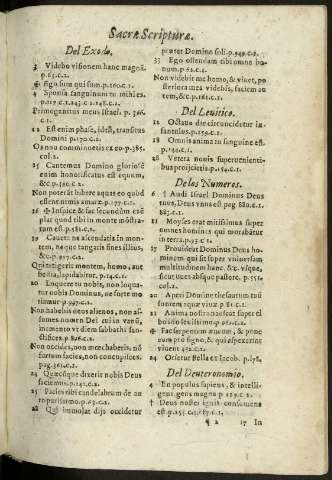 Sacræ Scripturæ.
Del Exodo.
3 Videbo visionem hanc magnã.
p.63.c.2.
✠ Ego sum qui sum.p.160.c.1.
4 Sponsus sanguinum tu mihi es.
p.117.c.2.
Primogenitus meus Israel. p.366.
c.1.
12 Est enim phase, idest, transitus
Domini p.170.c.1.
Os non comminuetis ex eo p.385.
col.1.
15 Cantemus Domino gloriosè
enim honorificatus est equum,
&c.p.580.c.2.
Non poterãt bibere aquas eo quod
essent nimis amaræ.p.177.c.1.
26 ✠ Inspice & fac secundũm exẽ
plar quod tibi in monte mõstra
tum est.p.581.c.1.
19 Cauete ne ascendatis in mon-
tem, neque tangatis fines illius,
&c.p.917.c.2.
Qui tetigerit montem, homo, aut
bestia, lapidabitur. p.141.c.1.
20 Loquere tu nobis, non loqua-
tur nobis Dominus, ne forte mo
riamur.p.997.c.2.
Non habebis deos alienos, non assu-
mes nomen Dei tui in vanũ,
memento vt diem sabbathi san-
ctifices.p.826.c.1.
Non occides, non mœchaberis, nõ
furtum facies, non concupisces.
pag.361.c.1.
24 Quæcũque dixerit nobis Deus
faciemus.p.141.c.1.
25 Facies tibi candelabrum de au-
ro purissimo.p.63.c.2.
22 Qui immolat dijs occidetur
præter Domino soli.p.949.c.2.
33 Ego ostendam tibi omne bo-
num.p.62.c.1.
Non videbit me homo, & viuet, po
steriora mea videbis, faciem au
tem, &c.p.161.c.1.
Del Leuitico.
12 Octauo die circuncidetur in-
fantulus.p.159.c.1.
18 Omnis anima in sanguine est.
p.141.c.1.
26 Vetera nouis superuenienti-
bus projicietis.p.154.c.1.
De los Numeros.
6 † Audi Israel Dominus Deus
tuus, Deus vnus est pag.880.c.
2.883.c.1.
12 Moyses erat mitissimus super
omnes homines qui morabãtur
in terra.p.93.c.1.
27 Prouideat Dominus Deus ho-
minem qui sit super vniuersam
multitudinem hanc &c. vsque,
sicut oues absque pastore. p.551.
col.1.
20 Aperi Domine thesaurum tuũ
fontem aquæ viuæ p.82.c.1.
21 Anima nostra nauseat super ci
bo isto leuissimo.p.661.c.2.
✠ Fac serpentem æneum, & pone
eum pro signo, & qui aspexerint
viuent.432.c.1.
24 Orietur stella ex Iacob. p.178.
Del Deuteronomio.
4 En populus sapiens, & intelli-
gens, gens magna p.159.c.1.
† Deus noster ignis consumens
est p.155.c.2.187.c.1.
¶ 2
17 In